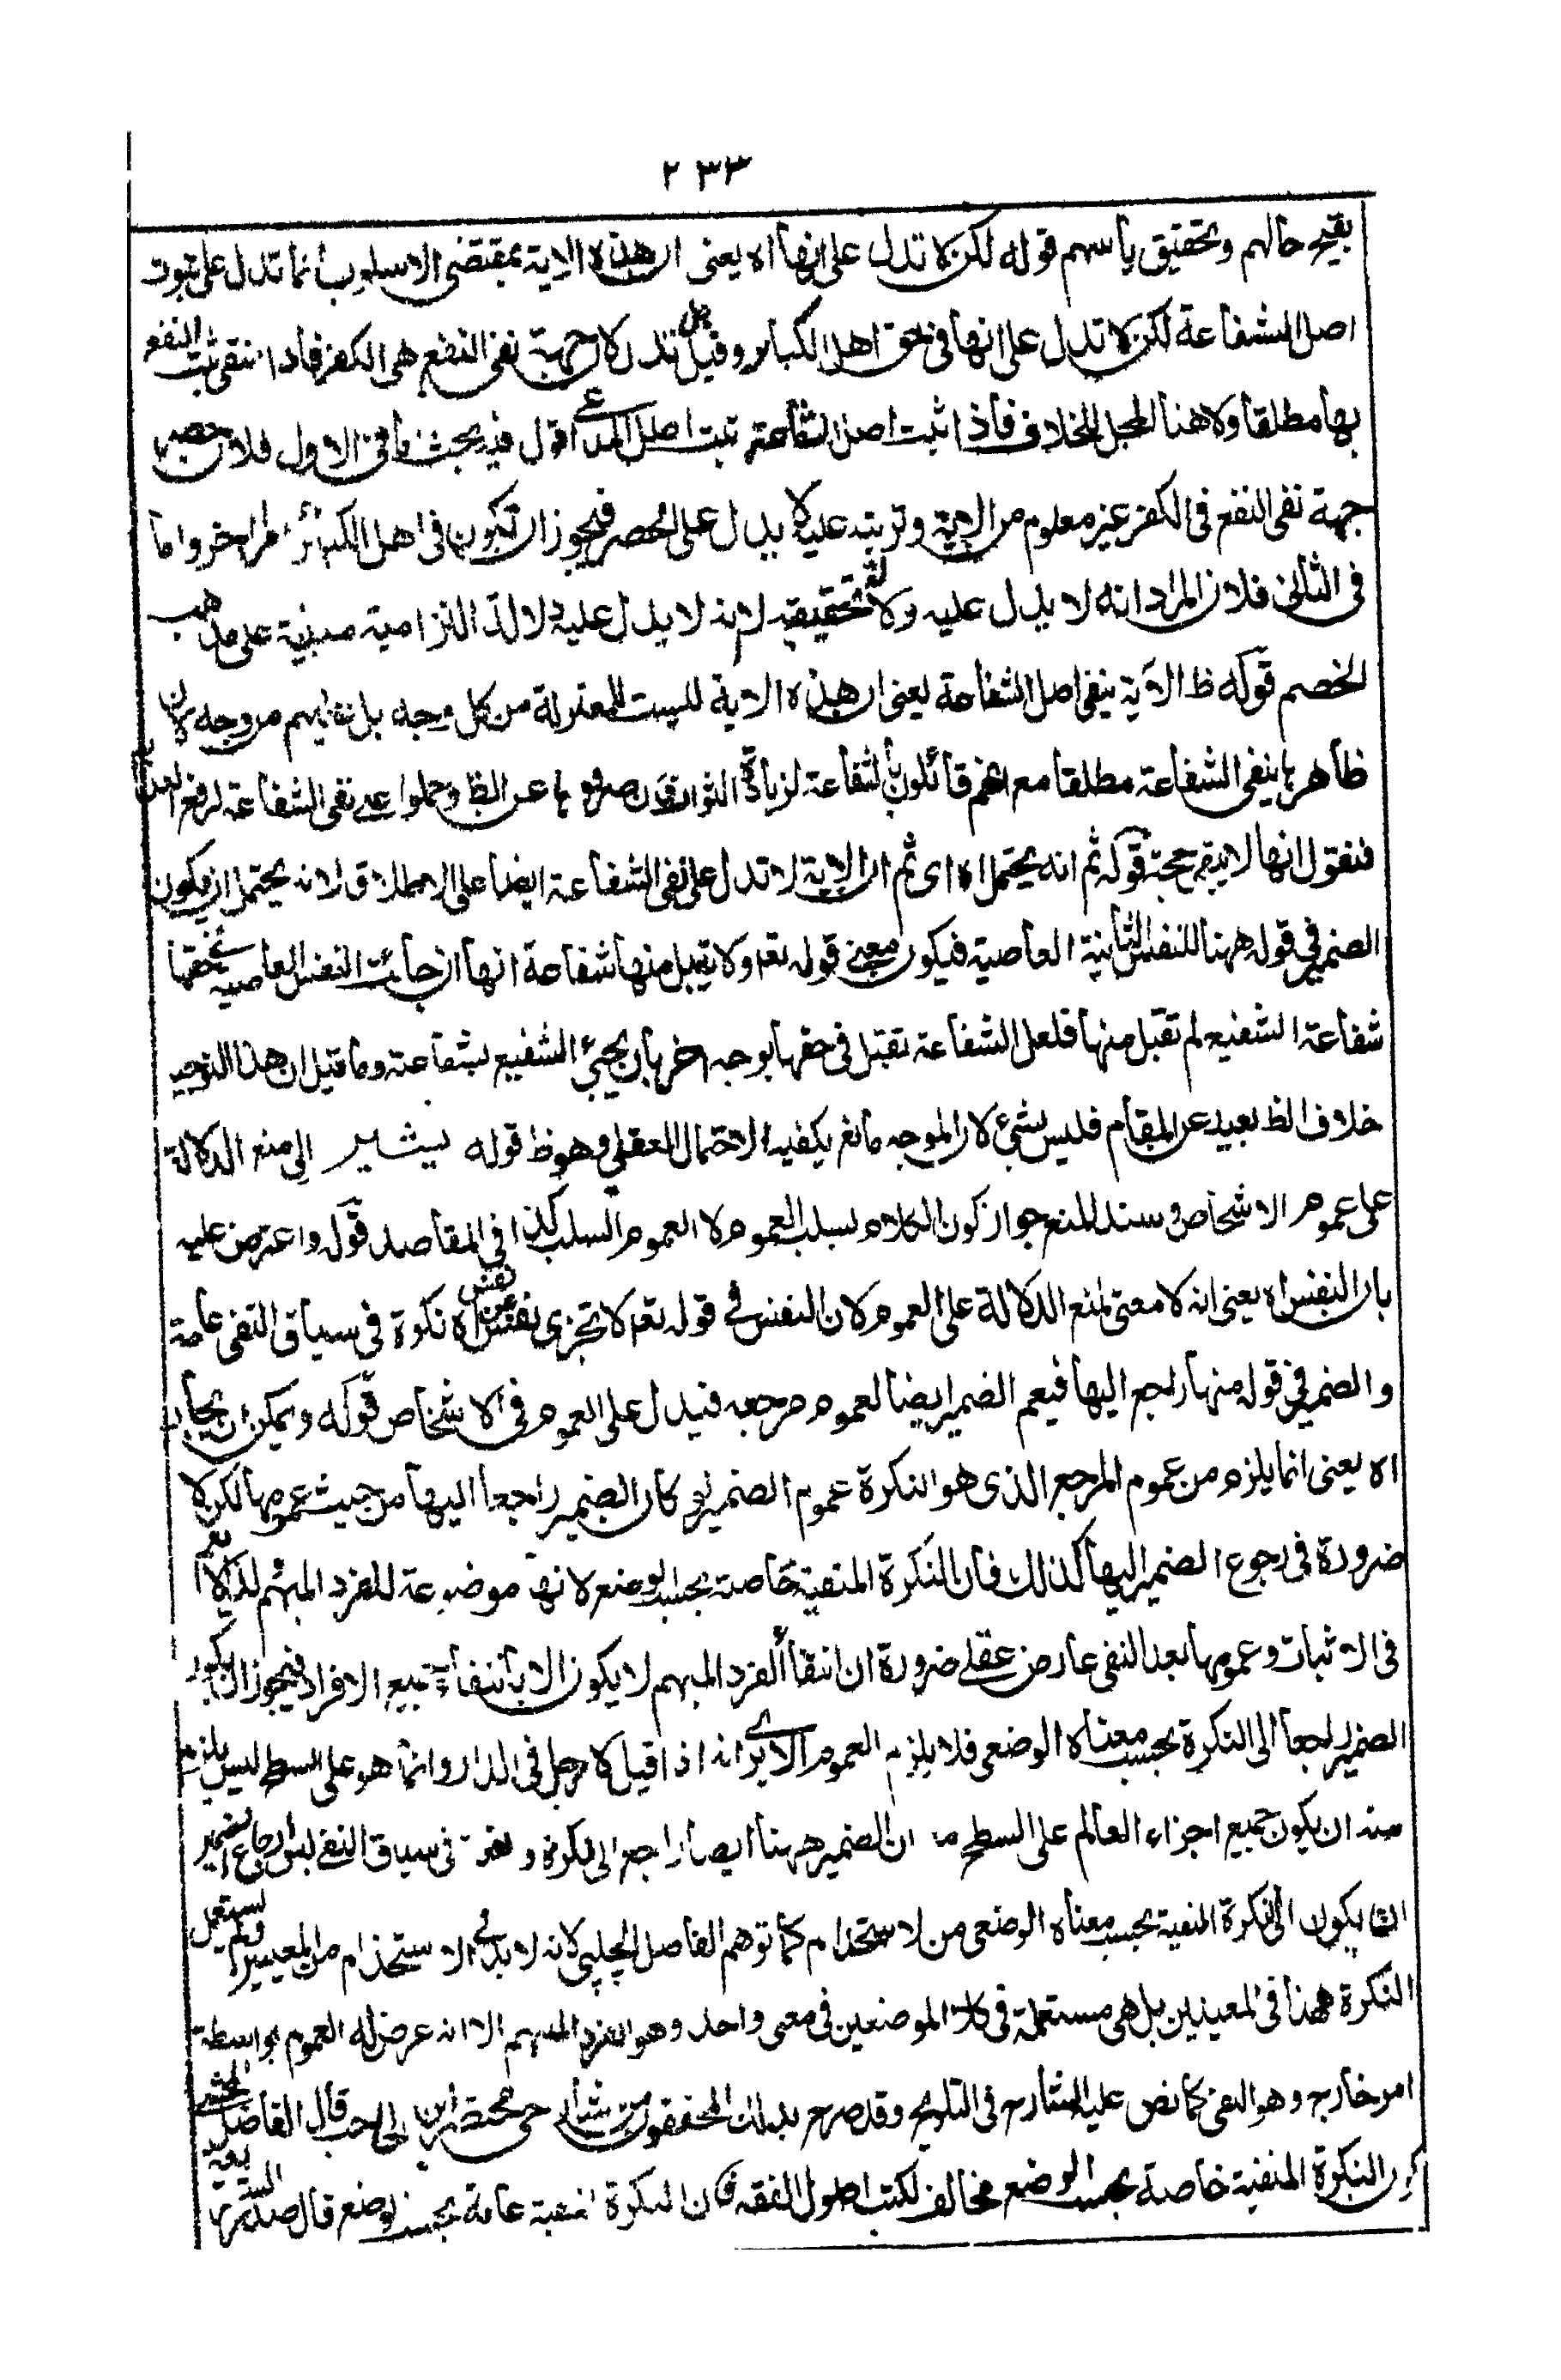 ٢٣٣
بقبح حالهم وتحقيق يأسهم قوله لكن لا تدل على انها اه يعنى ان هذه الاية بمقتضى الاسلوب انما تدل على ثبوت
اصل الشفاعة لكن لا تدل على انها فى حق اهل الكبائر وقيل بل تدل لان جهة نفى النفع هى الكفر فاذا انتفى ثبت النفع
بها مطلقا ولا هنا المحل للخلاف فاذا ثبت اصل الشفاعة ثبت اصل المدعى اقول فيه بحث اما فى الاول فلان حصر
جهة نفى النفع فى الكفر غير معلوم من الاية وترتبه عليه لا يدل على الحصر فيجوز ان تكون فى اهل الكبائر امرا اخر واما
فى الثانى فلان المراد انه لا يدل عليه ولا تحقيقه لانه لا يدل عليه دلالة التزامية مبنية على مذهب
الخصم قوله ظ الاية ينفى اصل الشفاعة يعنى ان هذه الاية ليست للمعتزلة من كل وجه بل عليهم من وجه لان
ظاهرها ينفى الشفاعة مطلقا مع انهم قائلون بالشفاعة لزيادة الثواب صرفوها عن الظ وحملوا على نفى الشفاعة لرفع العذاب
فنقول انها لا يبقى حجة قوله ثم انه يحتمل اه اى ثم ان الاية لا تدل على نفى الشفاعة ايضا على الاطلاق لانه يحتمل ان يكون
الضمير فى قوله ههنا للنفس الثانية العاصية فيكون معنى قوله تعا ولا تقبل منها شفاعة انها ان جائت النفس العاصية
شفاعة الشفيع لم تقبل منها فلعل الشفاعة تقبل فى حقها بوجه اخر بان يجئ الشفيع لشفاعته وما قيل ان هذا التوجيه
خلاف الظ بعيد عن المقام فليس بشئ لان الموجه مانع يكفيه الاحتمال العقلى وهو ظ قوله يشير الى منع الدلالة
على عموم الاشخاص وسند للمنع جواز كون الكلام لسلب العموم لا العموم السلب كذا فى المقاصد قوله واعترض عليه
بان النفس اه يعنى انه لا معنى لمنع الدلالة على العموم لان النفس فى قوله تعا لا تجزى نفس عن نفس اه نكرة فى سياق النفى عامة
والضمير فى قوله منها راجع اليها فيعم الضمير ايضا لعموم مرجعه فيدل على العموم فى الاشخاص قوله ويمكن ان يجاب
اه يعنى انما يلزم من عموم المرجع الذى هو النكرة عموم الضمير لو كان الضمير راجعا اليها من حيث عمومها لكن لا
ضرورة فى رجوع الضمير اليها كذلك فان النكرة المنفية خاصة بحسب الوضع لانها موضوعة للفرد المبهم لذا لا تعم
فى الاثبات وعمومها بعد النفى عارض عقلى ضرورة ان انتفاء الفرد المبهم لا يكون الا بانتفاء جميع الافراد فيجوز ان يكون
الضمير راجعا الى النكرة بحسب معناه الوضعى فلا يلزم العموم الا يرى انه اذا قيل لا رجل فى الدار وانما هو على السطح ليس يلزم
منه ان يكون جميع اجزاء العالم على السطح ان الضمير ههنا ايضا راجع الى نكرة فى سياق النفى ليس ارجاع الضمير
يكون الى النكرة المنفية بحسب معناه الوضعى من الاستخدام كما توهم الفاضل الچلپى لانه لا بد فى الاستخذام من المعنيين ولم يستعمل
النكرة ههنا فى المعنيين بل هى مستعملة فى كلا الموضعين فى معنى واحد وهو الفرد المبهم الا انه عرض له العموم بواسطة
امر خارج وهو النفى كما نص عليه الشارح فى التلويح وقد صرح بذلك المحققون من شارحى مختصر ابن الحاجب قال الفاضل المحشى
كون النكرة المنفية خاصة بحسب الوضع مخالف لكتب اصول الفقه فان النكرة المنفية عامة بحسب الوضع قال صدر الشريعة